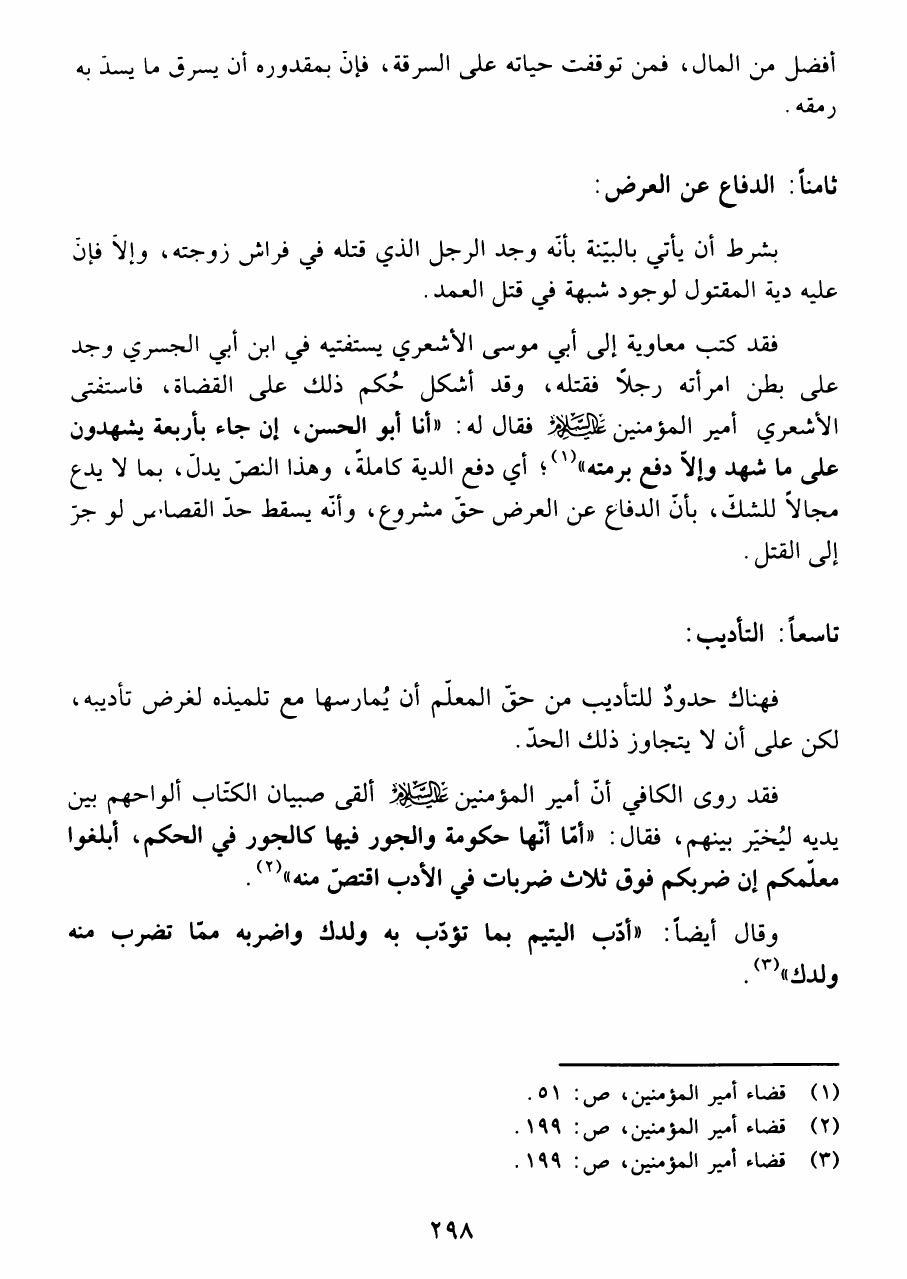 أفضل من المال، فمن توقفت حياته على السرقة، فإنّ بمقدوره أن يسرق ما يسدّ به
رمقه.
ثامناً: الدفاع عن العرض:
بشرط أن يأتي بالبيّنة بأنّه وجد الرجل الذي قتله في فراش زوجته، وإلاّ فإنّ
عليه دية المقتول لوجود شبهة في قتل العمد.
فقد كتب معاوية إلى أبي موسى الأشعري يستفتيه في ابن أبي الجسري وجد
على بطن امرأته رجلاً فقتله، وقد أشكل حُكم ذلك على القضاة، فاستفتى
الأشعري أمير المؤمنين عليه السلام فقال له: «أنا أبو الحسن، إن جاء بأربعة يشهدون
على ما شهد وإلاّ دفع برمته»(١)؛ أي دفع الدية كاملةً، وهذا النصّ يدلّ، بما لا يدع
مجالاً للشكّ، بأنّ الدفاع عن العرض حقّ مشروع، وأنّه يسقط حدّ القصاص لو جرّ
إلى القتل.
تاسعاً: التأديب:
فهناك حدودٌ للتأديب من حقّ المعلّم أن يُمارسها مع تلميذه لغرض تأديبه،
لكن على أن لا يتجاوز ذلك الحدّ.
فقد روى الكافي أنّ أمير المؤمنين عليه السلام ألقى صبيان الكتّاب ألواحهم بين
يديه ليُخيّر بينهم، فقال: «أمّا أنّها حكومة والجور فيها كالجور في الحكم، أبلغوا
معلّمكم إن ضربكم فوق ثلاث ضربات في الأدب اقتصّ منه»(٢).
وقال أيضاً: «أدّب اليتيم بما تؤدّب به ولدك واضربه ممّا تضرب منه
ولدك»(٣).
(١) قضاء أمير المؤمنين، ص: ٥١.
(٢) قضاء أمير المؤمنين، ص: ١٩٩.
(٣) قضاء أمير المؤمنين، ص: ١٩٩.
٢٩٨